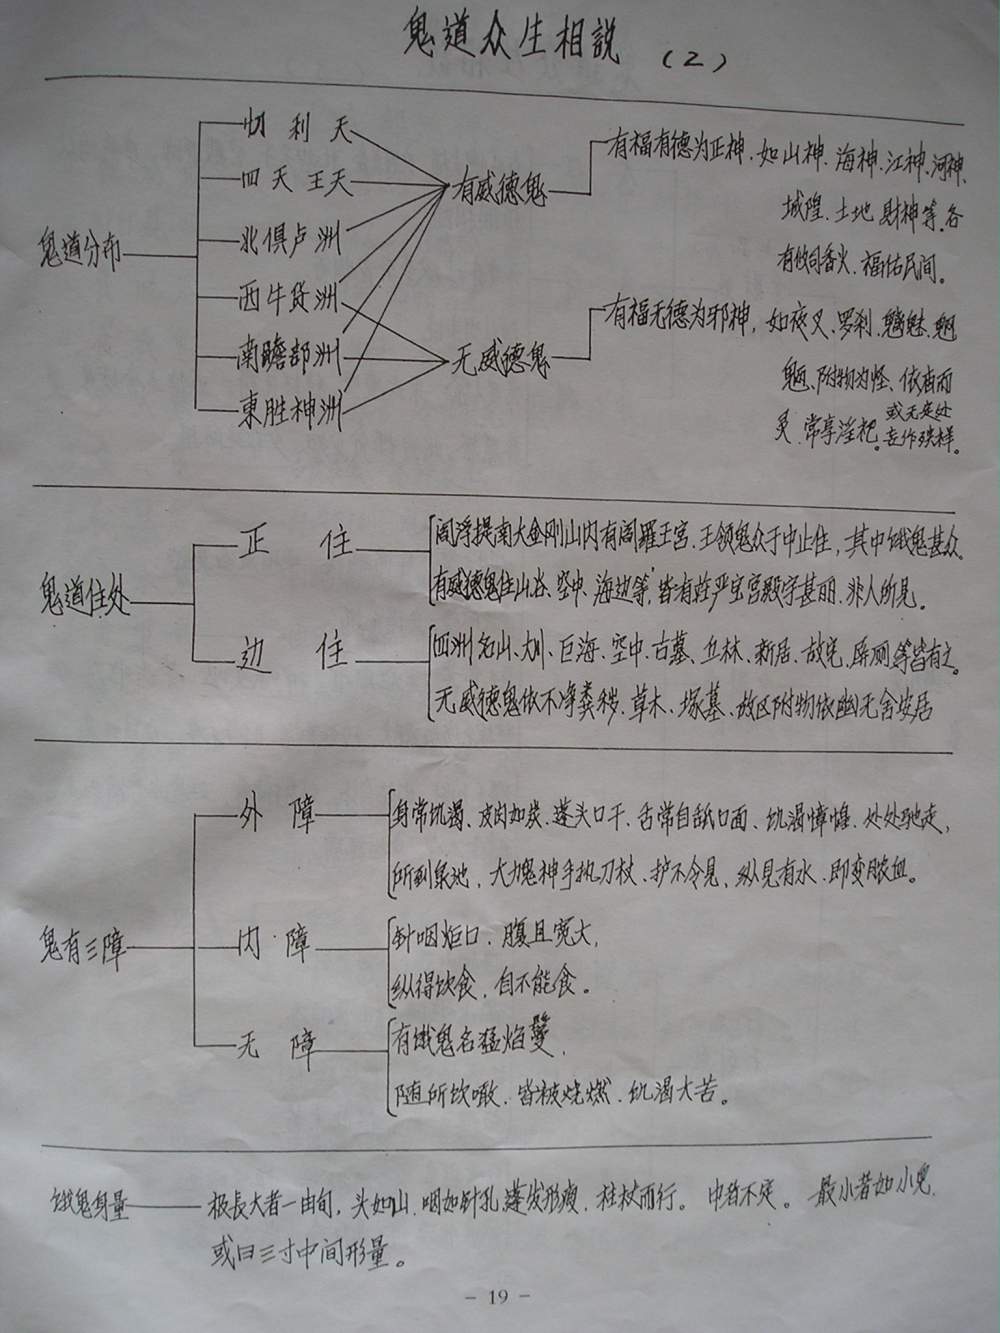 鬼道众生相説 （2）
鬼道分布
忉利天
四天王天
北俱卢洲
西牛货洲
南瞻部洲
東胜神洲
有威德鬼
无威德鬼
有福有德为正神、如山神、海神、江神、河神、
城隍、土地、財神等、各
有攸司香火、福佑民间。
有福无德为邪神，如夜叉、罗刹、魑魅、魍
魉、附物为怪、依畜而
灵、常享淫祀。或无定处
去作殃祥。
鬼道住处
正住
阎浮提南大金刚山内有阎羅王宫、王领鬼众于中止住，其中饿鬼甚众。
有威德鬼住山谷、空中、海边等，皆有莊严宝宫殿宇甚丽、非人所见。
边住
四洲名山、大川、巨海、空中、古墓、丘林、新居、故宅、屏厕等皆有之。
无威德鬼依不净粪秽、草木、塚墓、故区附物依幽无舍安居
鬼有三障
外障
身常饥渴、皮肉如炭、蓬头口干、舌常自舐口面、饥渴慞惶、处处驰走，
所到泉池，大力鬼神手执刀杖、护不令见，纵见有水、即变脓血。
内障
针咽炬口、腹且宽大，
纵得饮食，自不能食。
无障
有饿鬼名猛焰鬘，
随所饮噉、皆被烧燃、饥渴大苦。
饿鬼身量
极長大者一由旬，头如山、咽如针孔、蓬发形瘦、柱杖而行。中者不定。最小者如小兒，
或曰三寸中间形量。
- 19 -